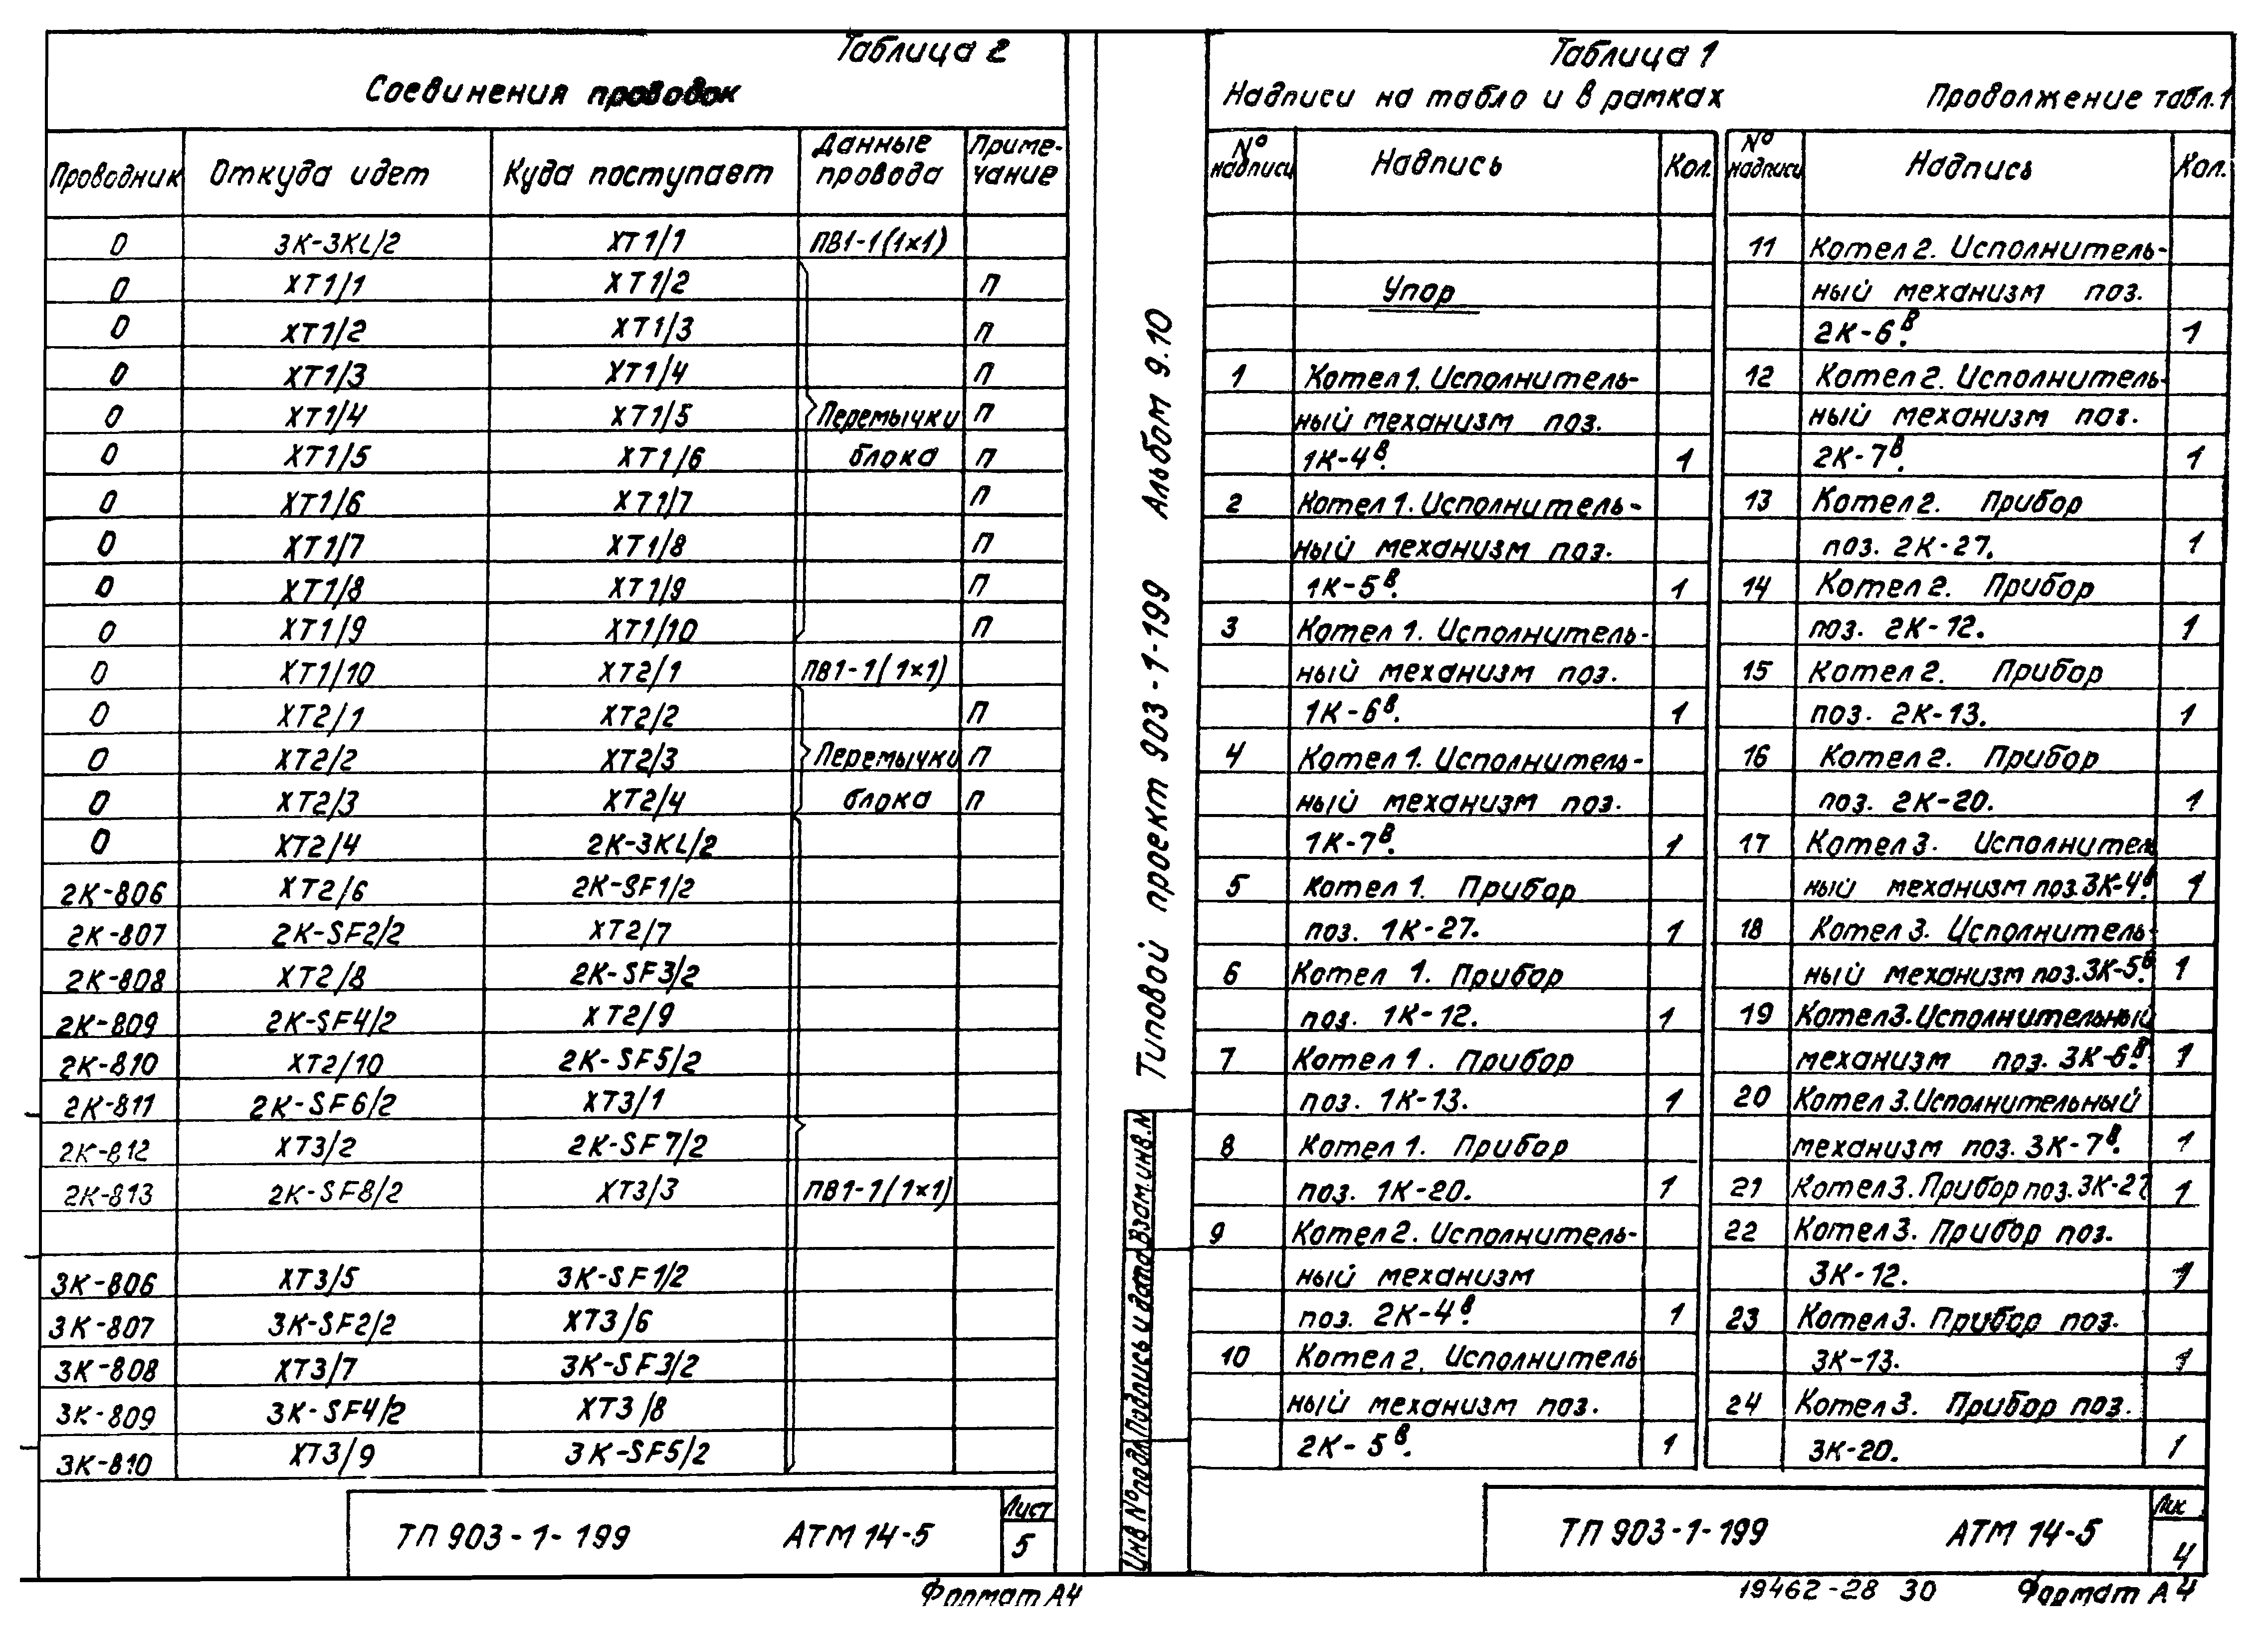 Таблица 2
Соединения проводок
Проводник Откуда идет Куда поступает Данные провода Приме-чание
0 3К-3KL/2 XT1/1 ПВ1-1(1×1)
0 XT1/1 XT1/2 П
0 XT1/2 XT1/3 П
0 XT1/3 XT1/4 П
0 XT1/4 XT1/5 Перемычки П
0 XT1/5 XT1/6 блока П
0 XT1/6 XT1/7 П
0 XT1/7 XT1/8 П
0 XT1/8 XT1/9 П
0 XT1/9 XT1/10 П
0 XT1/10 XT2/1 ПВ1-1(1×1)
0 XT2/1 XT2/2 П
0 XT2/2 XT2/3 Перемычки П
0 XT2/3 XT2/4 блока П
0 XT2/4 2К-3KL/2
2К-806 XT2/6 2К-SF1/2
2К-807 2К-SF2/2 XT2/7
2К-808 XT2/8 2К-SF3/2
2К-809 2К-SF4/2 XT2/9
2К-810 XT2/10 2К-SF5/2
2К-811 2К-SF6/2 XT3/1
2К-812 XT3/2 2К-SF7/2
2К-813 2К-SF8/2 XT3/3 ПВ1-1(1×1)
3К-806 XT3/5 3К-SF1/2
3К-807 3К-SF2/2 XT3/6
3К-808 XT3/7 3К-SF3/2
3К-809 3К-SF4/2 XT3/8
3К-810 XT3/9 3К-SF5/2
ТП 903-1-199 АТМ 14-5
Лист
5
Формат А4
Типовой проект 903-1-199 Альбом 9.10
Инв № подл. Подпись и дата Взам.инв.№
Таблица 1
Надписи на табло и в рамках
№ надписи Надпись Кол.
Упор
1 Котел 1. Исполнитель-
ный механизм поз.
1К-4в. 1
2 Котел 1. Исполнитель-
ный механизм поз.
1К-5в. 1
3 Котел 1. Исполнитель-
ный механизм поз.
1К-6в. 1
4 Котел 1. Исполнитель-
ный механизм поз.
1К-7в. 1
5 Котел 1. Прибор
поз. 1К-27. 1
6 Котел 1. Прибор
поз. 1К-12. 1
7 Котел 1. Прибор
поз. 1К-13. 1
8 Котел 1. Прибор
поз. 1К-20. 1
9 Котел 2. Исполнитель-
ный механизм
поз. 2К-4в. 1
10 Котел 2. Исполнитель
ный механизм поз.
2К-5в. 1
Продолжение табл.1
№ надписи Надпись Кол.
11 Котел 2. Исполнитель-
ный механизм поз.
2К-6в. 1
12 Котел 2. Исполнитель-
ный механизм поз.
2К-7в. 1
13 Котел 2. Прибор
поз. 2К-27. 1
14 Котел 2. Прибор
поз. 2К-12. 1
15 Котел 2. Прибор
поз. 2К-13. 1
16 Котел 2. Прибор
поз. 2К-20. 1
17 Котел 3. Исполнител
ный механизм поз.3К-4в. 1
18 Котел 3. Исполнитель-
ный механизм поз.3К-5в. 1
19 Котел 3. Исполнительный
механизм поз. 3К-6в. 1
20 Котел 3. Исполнительный
механизм поз. 3К-7в. 1
21 Котел 3. Прибор поз. 3К-27 1
22 Котел 3. Прибор поз.
3К-12. 1
23 Котел 3. Прибор поз.
3К-13. 1
24 Котел 3. Прибор поз.
3К-20. 1
ТП 903-1-199 АТМ 14-5
Лис
4
19462-28 30 Формат А4